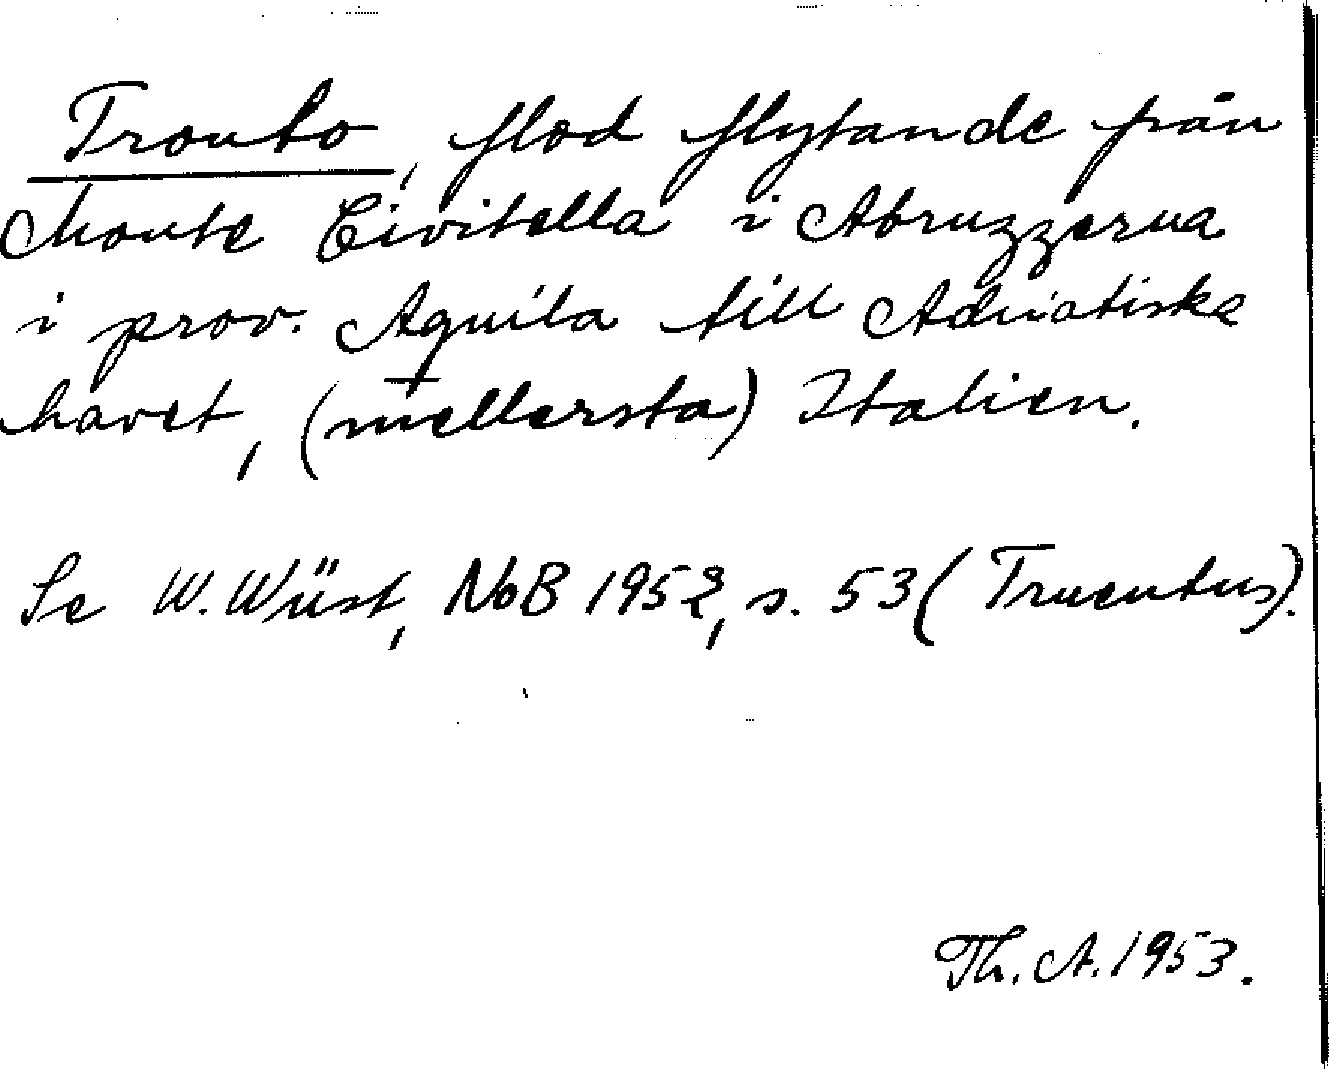 Tronto, flod flytande från
Monte Civitella i Abruzzerna
i prov. Aquila till Adriatiska
havet, (mellersta) Italien.
Se W. Wüst, NoB 1952, s. 53 (Truentus).
Th. A. 1953.